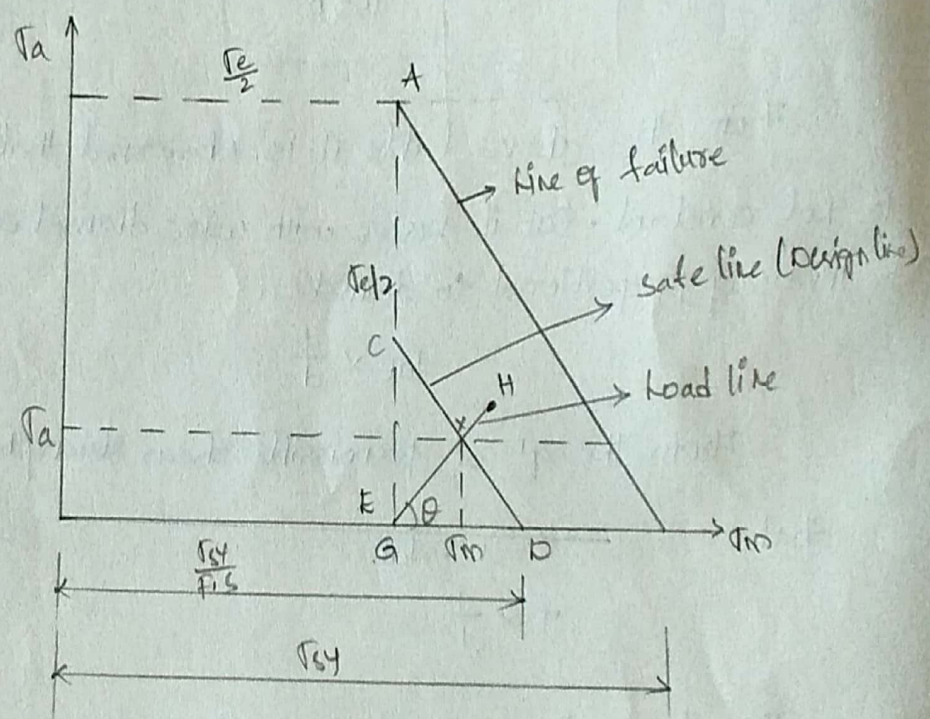 τa
τe/2
A
Line of failure
τe/2
safe line (Design line)
C
H
Load line
τa
x
E θ
G τm D τm
τsy/F.S
τsy